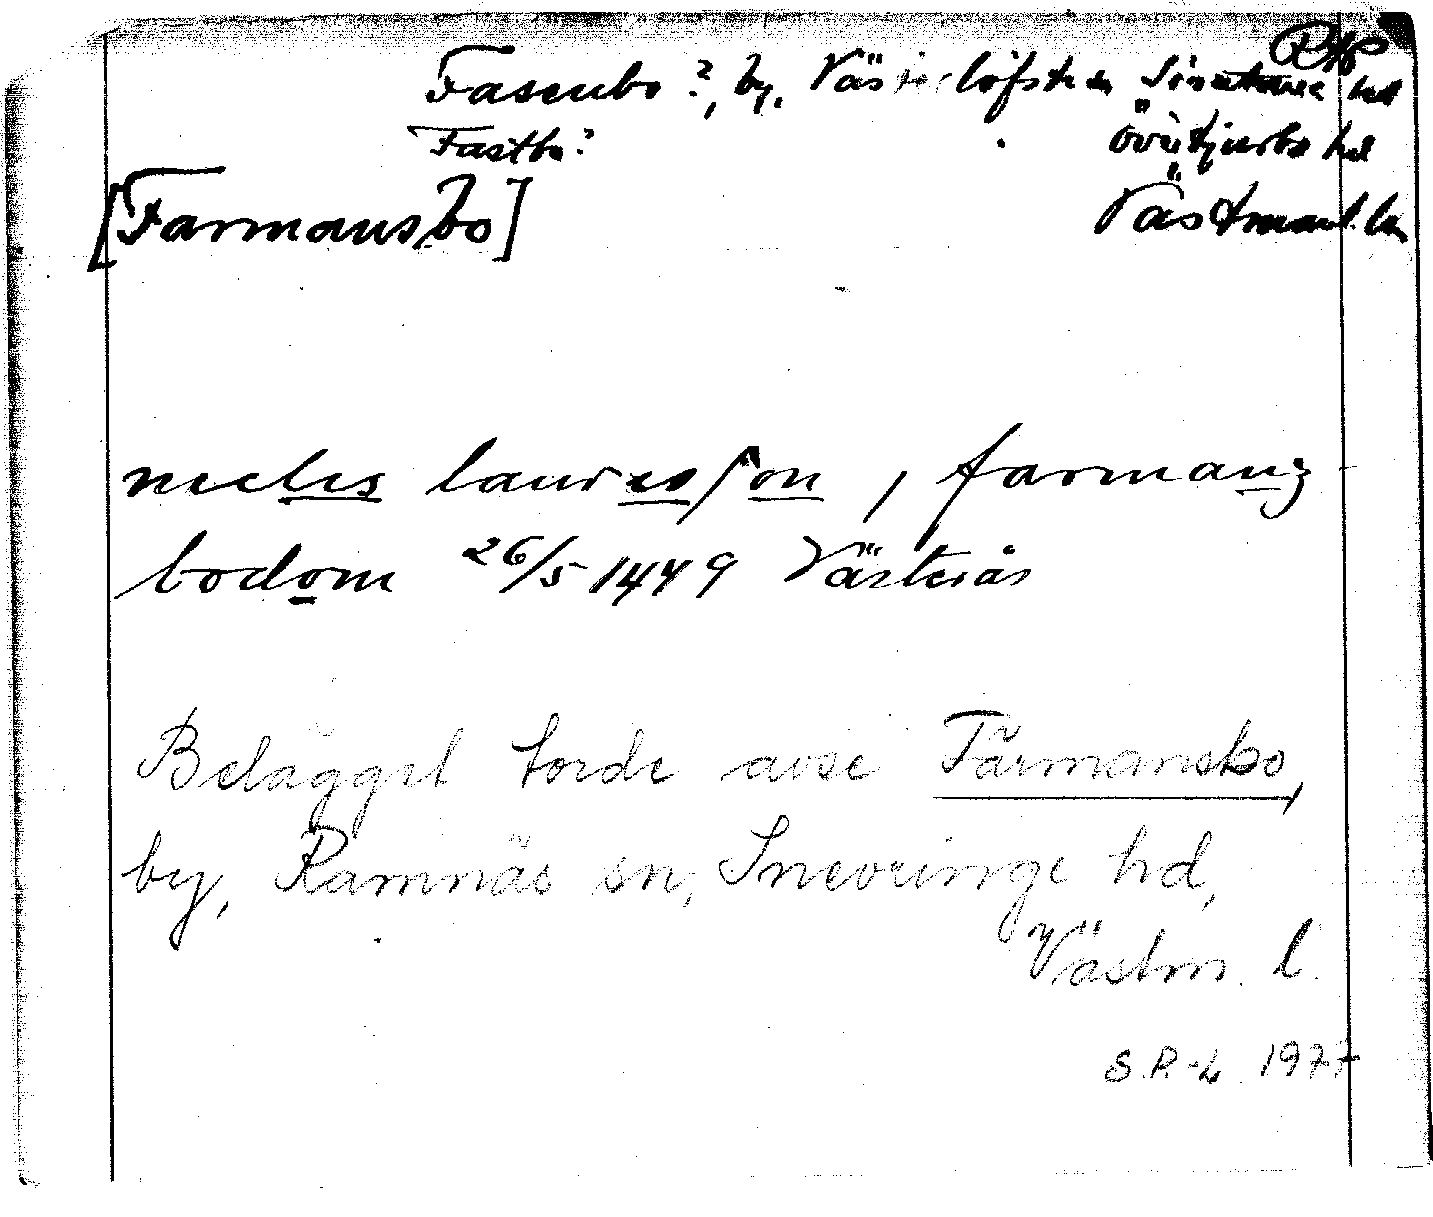 RAP
Fasenbo?, by, Västerlöfsta sn Simtuna hd
Fastbo? Övertjurbo hd
[Farmansbo] Västmanl. län
neclis lauresson, farmanz-
bodom 26/5 1449 Västerås
Belägget torde avse Färmansbo,
by, Ramnäs sn, Snevringe hd,
Västm. l.
S.R-L 1977